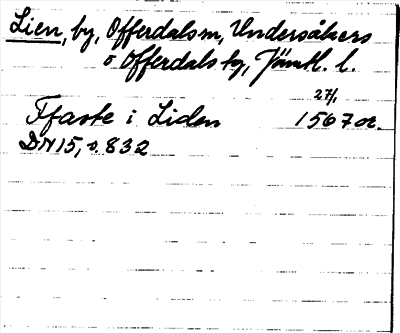 Lien, by, Offerdals sn, Undersåkers
o Offerdals tg, Jämtl. l.
27/1
Ffaste i Liden 1567 or.
DN 15, s 832